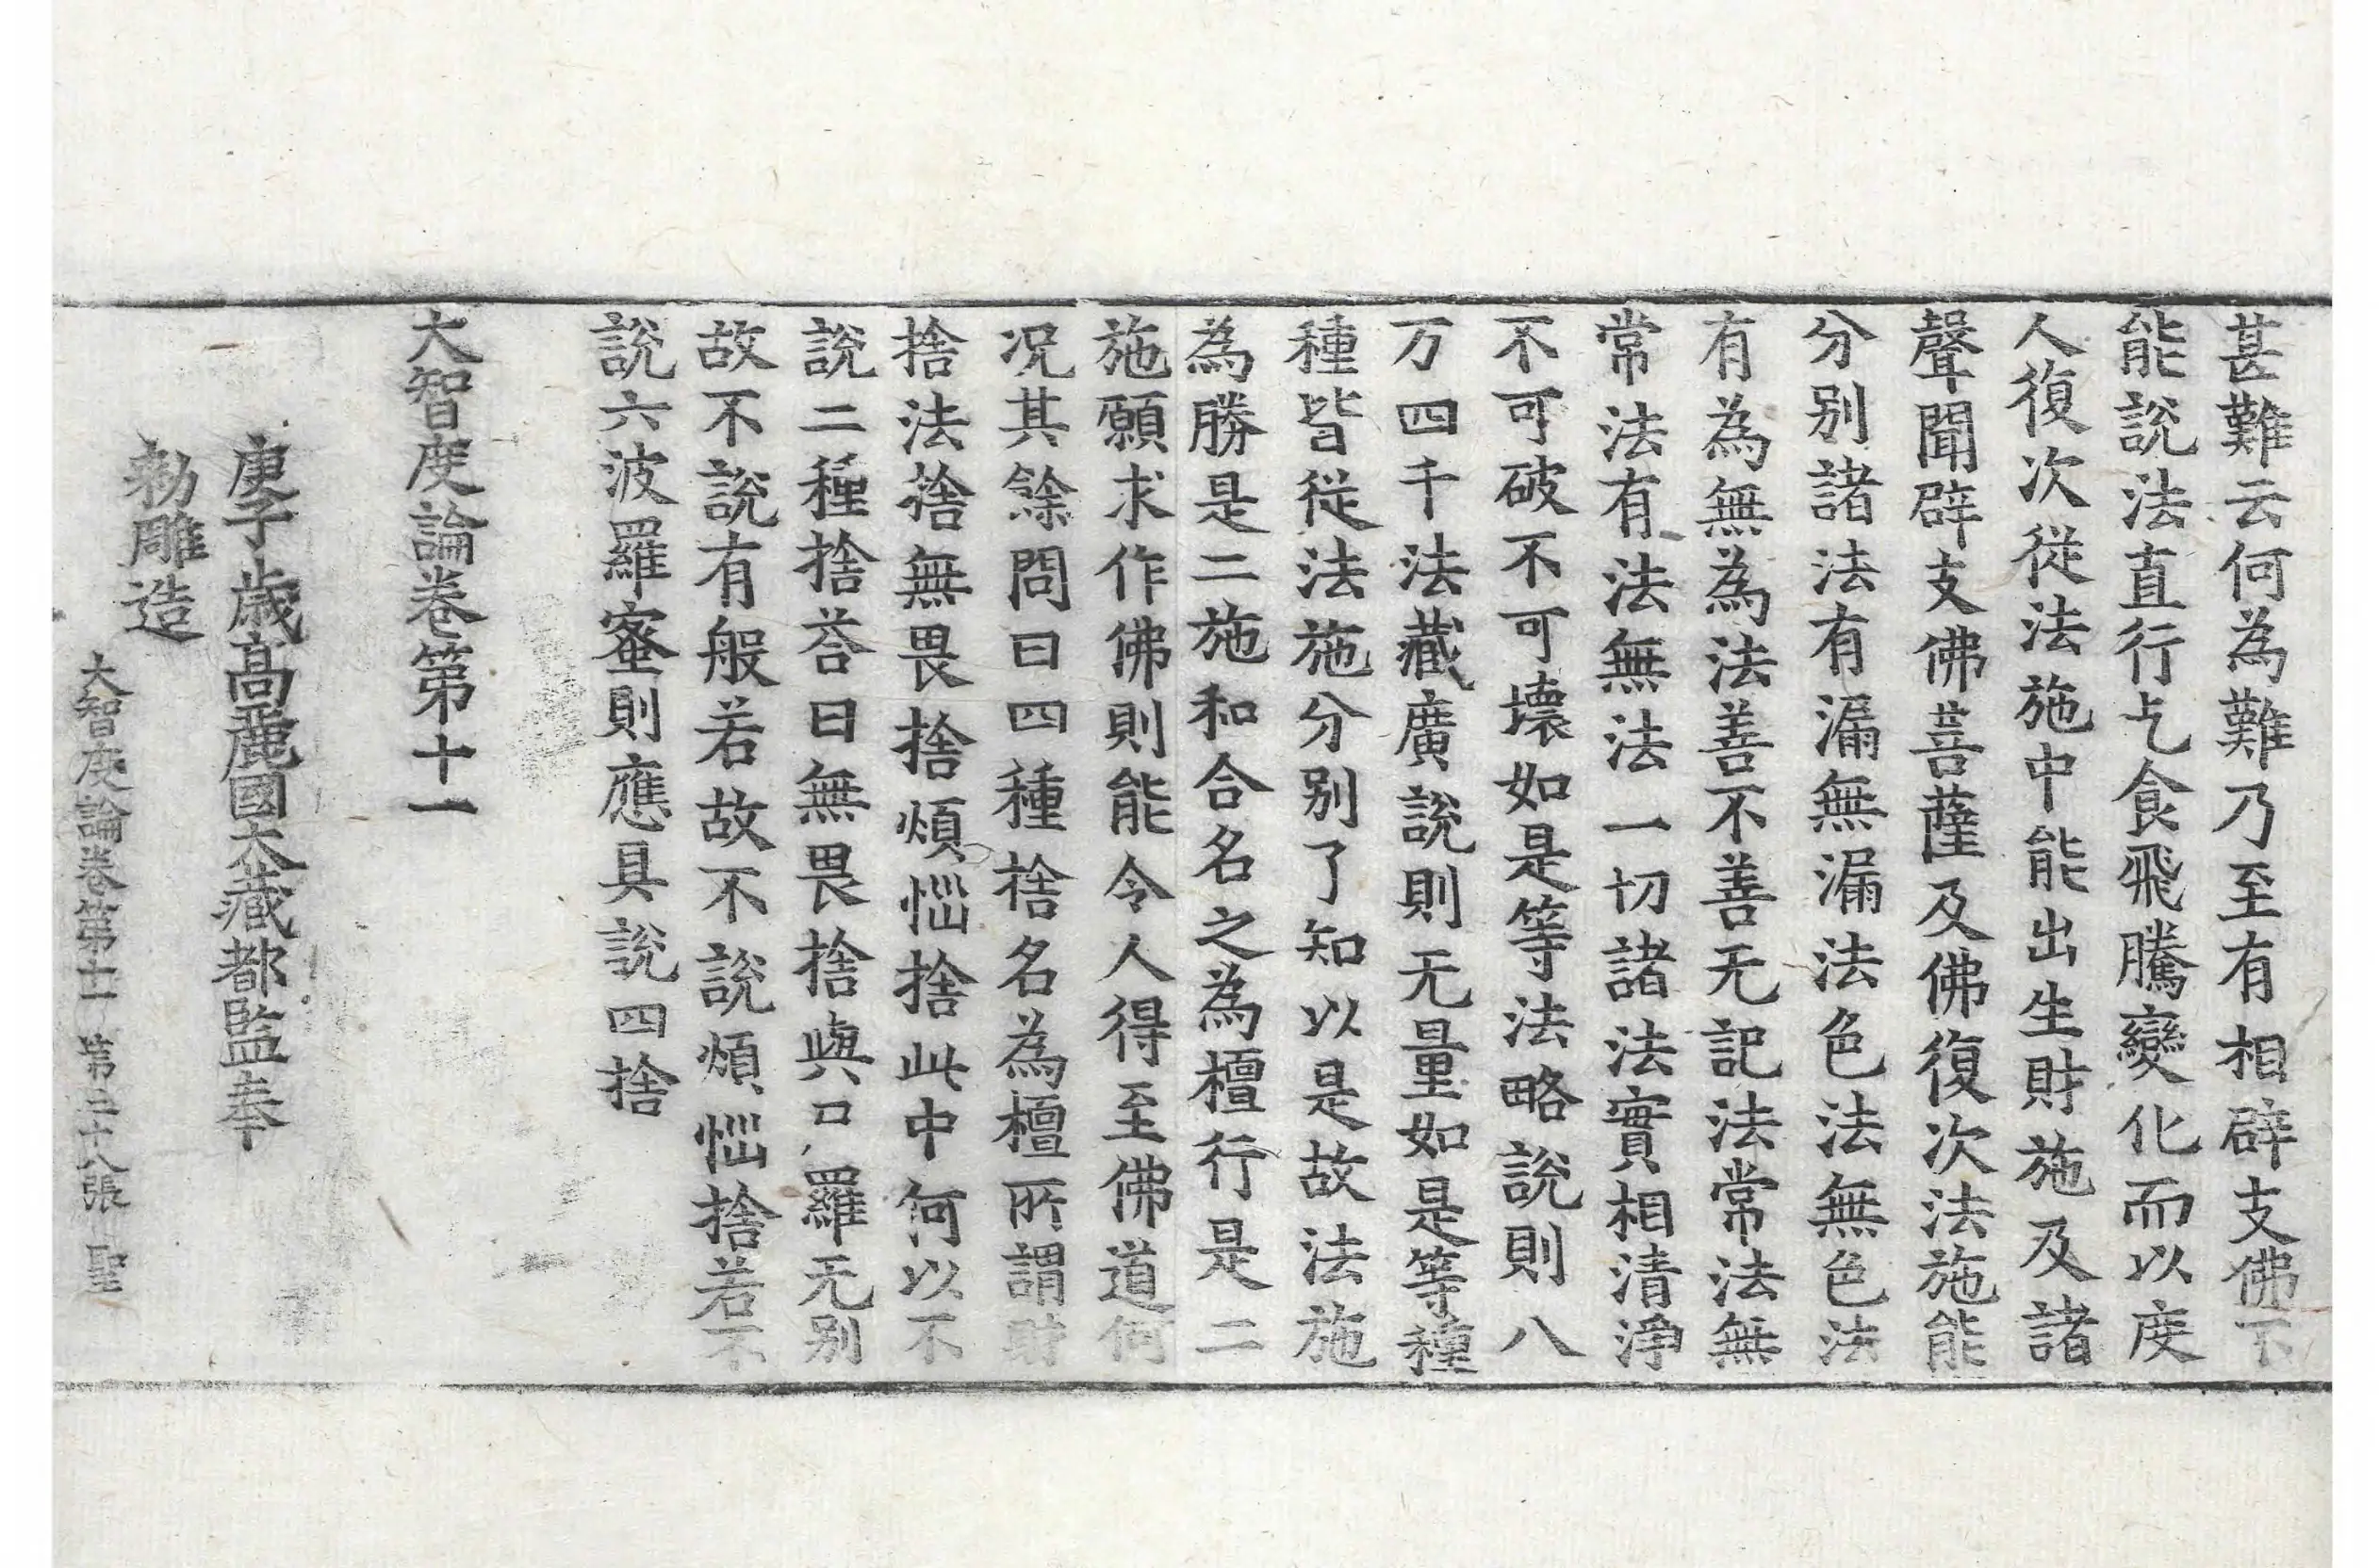 甚難云何為難乃至有相辟支佛不
能說法直行乞食飛騰變化而以度
人復次從法施中能出生財施及諸
聲聞辟支佛菩薩及佛復次法施能
分別諸法有漏無漏法色法無色法
有為無為法善不善无記法常法無
常法有法無法一切諸法實相清淨
不可破不可壞如是等法略說則八
万四千法藏廣說則无量如是等種
種皆從法施分別了知以是故法施
為勝是二施和合名之為檀行是二
施願求作佛則能令人得至佛道何
况其餘問曰四種捨名為檀所謂財
捨法捨無畏捨煩惱捨此中何以不
說二種捨荅曰無畏捨與尸羅无別
故不說有般若故不說煩惱捨若不
說六波羅蜜則應具說四捨
大智度論卷第十一
庚子歲高麗國大藏都監奉
勑雕造
大智度論卷第十一 第二十八張 聖